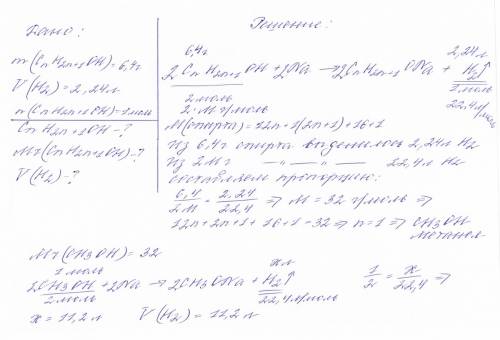 Дано:
m(CnH2n+1OH)=6,4г
V(H2)=2,24л
n(CnH2n+1OH)=1моль
CnH2n+1OH-?
Mr(CnH2n+1OH)-?
V(H2)-?
Решение:
6,4г 2,24л
2CnH2n+1OH+2Na→2CnH2n+1ONa+H2↑
2моль 1моль
2·M г/моль 22,4л/моль
M(спирта)=12n+1(2n+1)+16+1
Из 6,4г спирта выделилось 2,24л H2
Из 2Mг —"— —"— —"— 22,4л H2
составляем пропорцию:
6,4/2M=2,24/22,4 ⇒ M=32 г/моль ⇒
12n+2n+1+16+1=32 ⇒ n=1 ⇒ CH3OH
Метанол
Mr(CH3OH)=32
1моль xл
2CH3OH+2Na→2CH3ONa+H2↑ 1/2=x/22,4 ⇒
2моль 22,4л/моль
x=11,2л V(H2)=11,2л